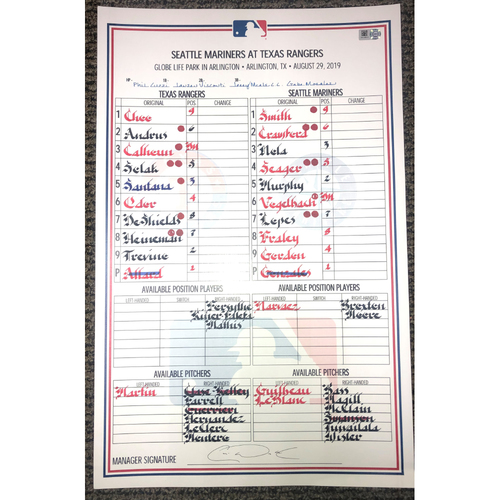 SEATTLE MARINERS AT TEXAS RANGERS
GLOBE LIFE PARK IN ARLINGTON • ARLINGTON, TX • AUGUST 29, 2019
HP- Phil Cuzzi 1B- 2B- 3B-
TEXAS RANGERS SEATTLE MARINERS
ORIGINAL POS. CHANGE ORIGINAL POS. CHANGE
1 Choo 9 1 Smith 9
2 Andrus 6 2 Crawford 6
3 Calhoun DH 3 Nola 3
4 Solak 5 4 Seager 5
5 Santana 3 5 Murphy 2
6 Odor 4 6 Vogelbach DH
7 DeShields 8 7 Lopes 7
8 Heineman 7 8 Fraley 8
9 Trevino 2 9 Gordon 4
P Allard 1 P Gonzales 1
AVAILABLE POSITION PLAYERS AVAILABLE POSITION PLAYERS
LEFT-HANDED SWITCH RIGHT-HANDED LEFT-HANDED SWITCH RIGHT-HANDED
Forsythe Narvaez Broxton
Kiner-Falefa Moore
Mathis
AVAILABLE PITCHERS AVAILABLE PITCHERS
LEFT-HANDED RIGHT-HANDED LEFT-HANDED RIGHT-HANDED
Martin Kelley Guilbeau Bass
Farrell LeBlanc Magill
Guerrieri McClain
Hernandez Swanson
Leclerc Tuivailala
Montero Wisler
MANAGER SIGNATURE